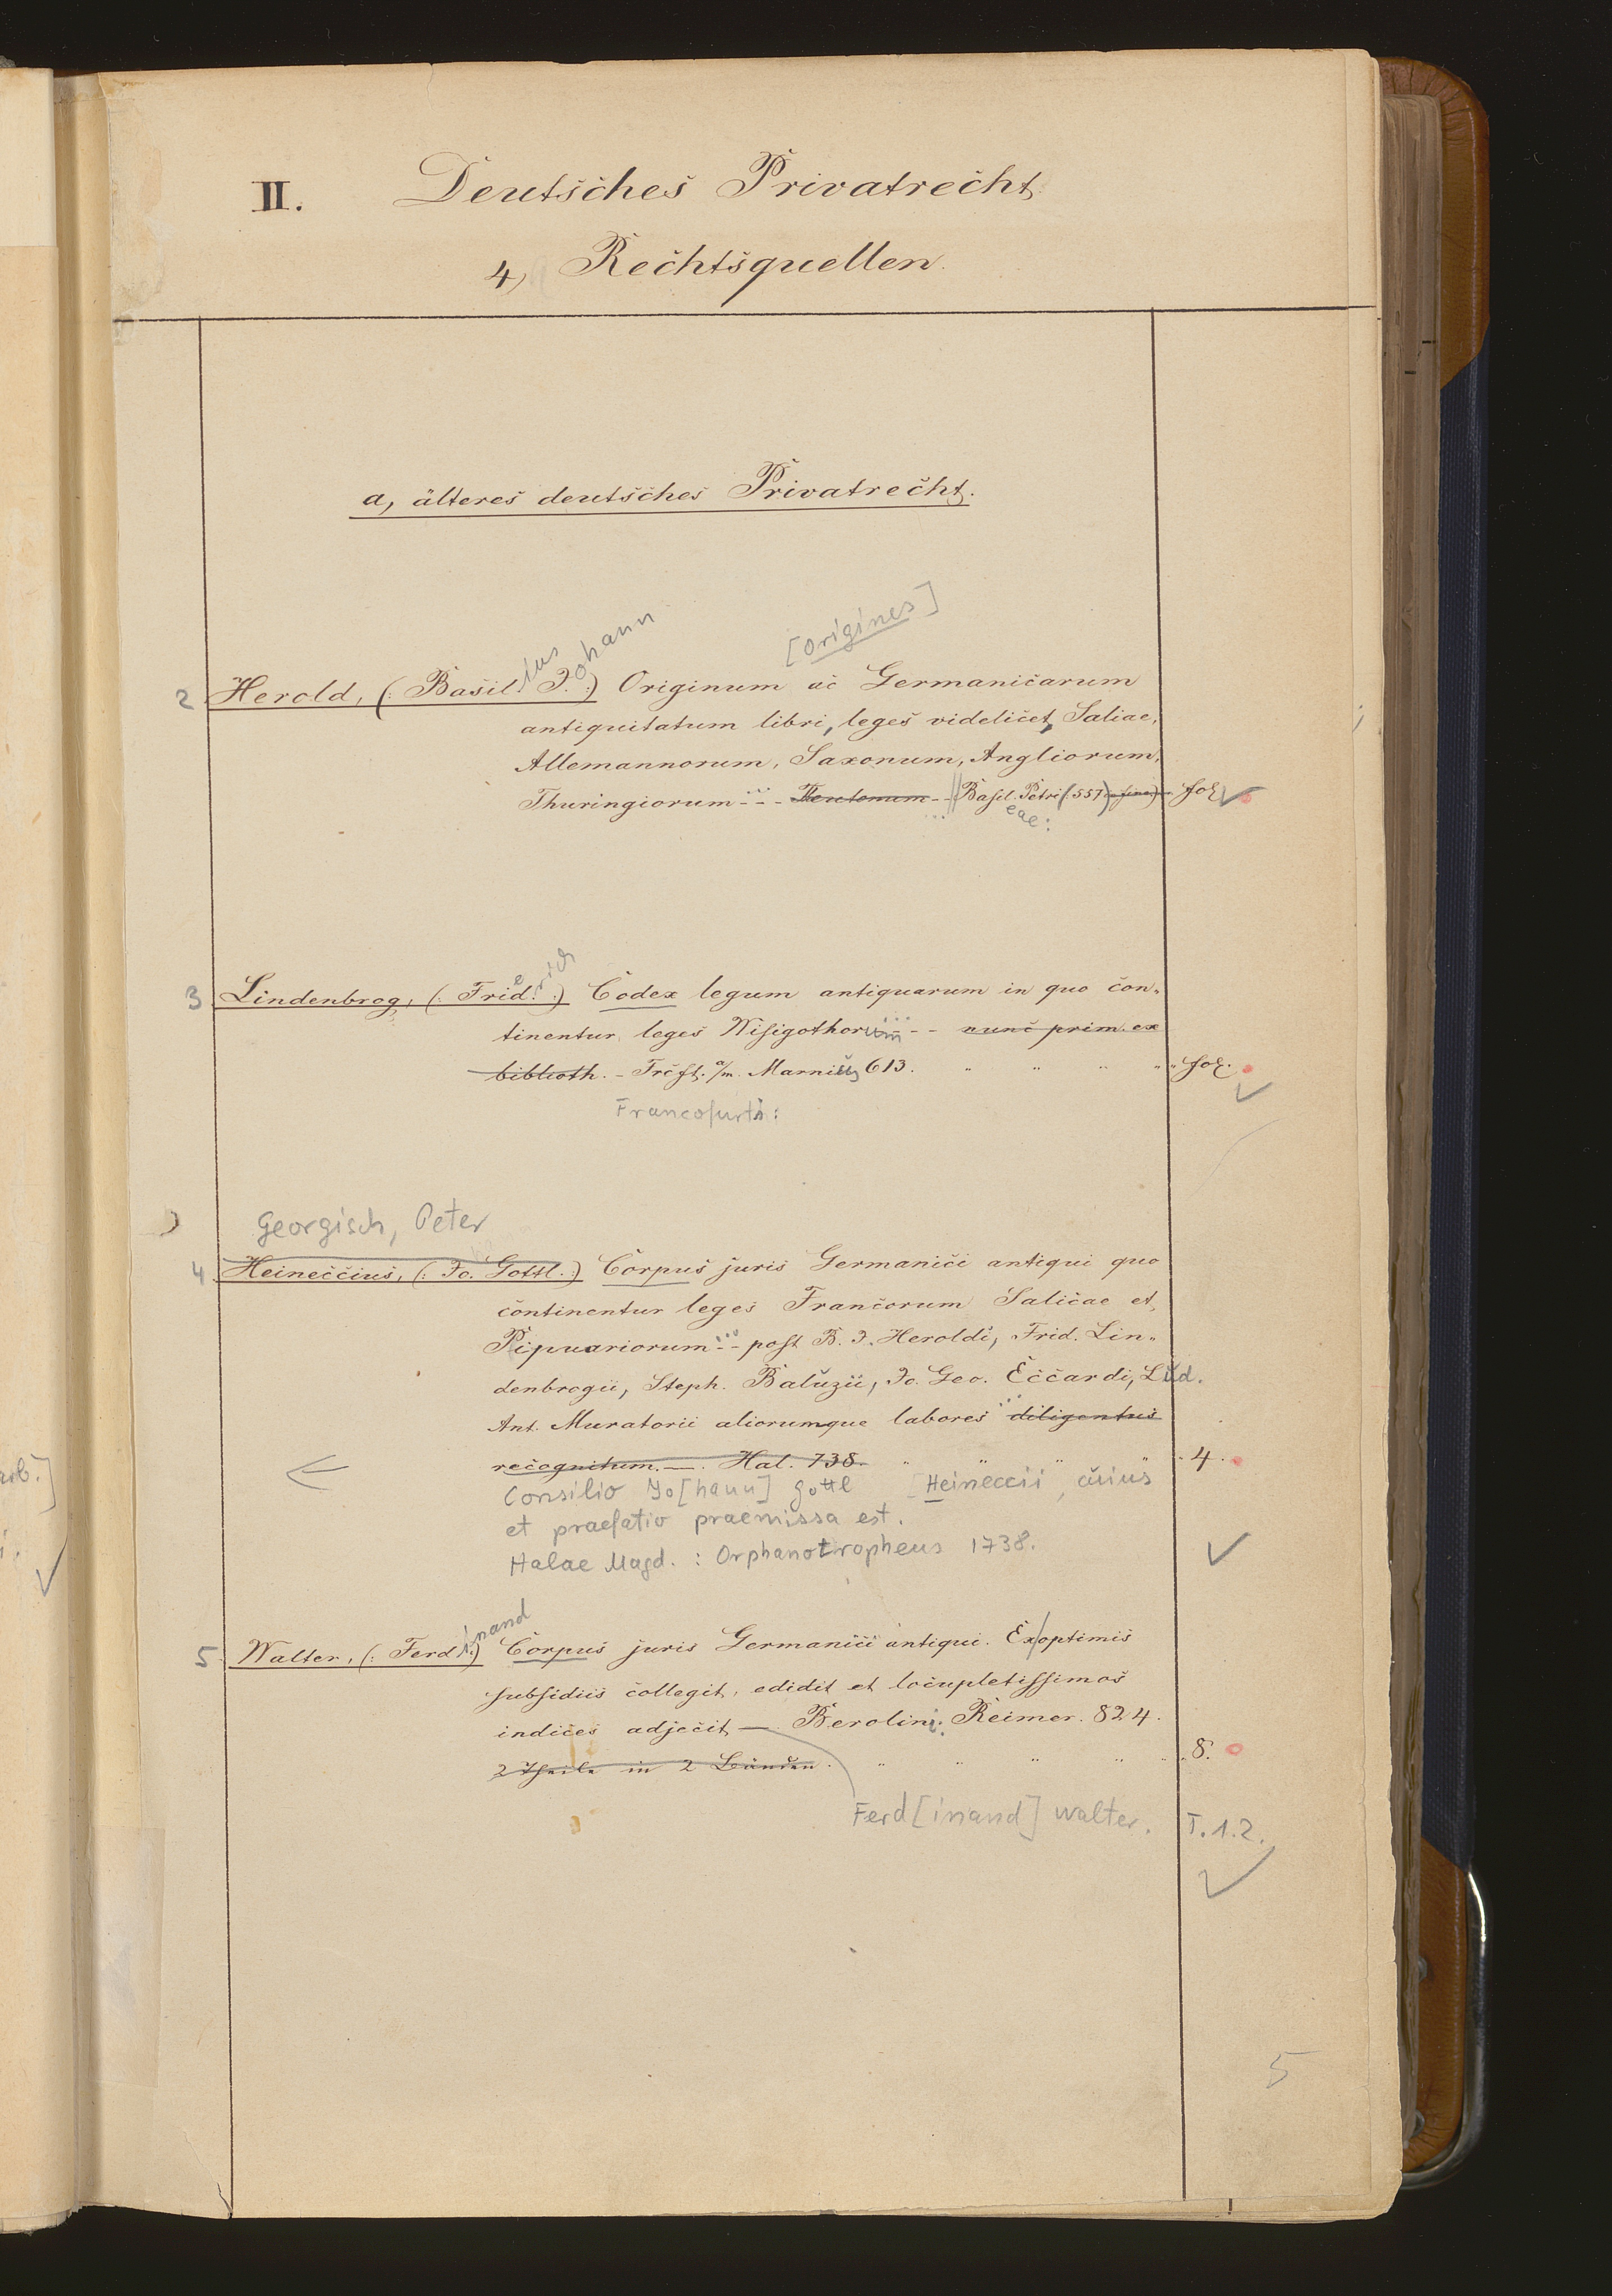 II. Deutsches Privatrecht
4, Rechtsquellen.
a, älteres deutsches Privatrecht.
[origines]
ius Johann
2 Herold, (: Basil. J. :) Originum ac Germanicarum
antiquitatum libri, leges videlicet, Saliae,
Allemannorum, Saxonum, Angliorum,
Thuringiorum ... - Teutonum - - Basil. Petri (557) fol.
eae:
rich
3 Lindenbrog, (: Frid. :) Codex legum antiquarum in quo con-
tinentur leges Wisigothorum ... - - nunc prim. ex
biblioth. - Frcft. a/m. Marnius 613. " " " " fol.
Francofurti:
Georgisch, Peter
4 Heineccius, (: Jo. Gottl. :) Corpus juris Germanici antiqui quo
continentur leges Francorum Salicae et
Ripuariorum ... - - post B. J. Heroldi, Frid. Lin-
denbrogii, Steph. Baluzii, Jo. Geo. Eccardi, Lud.
Ant. Muratorii aliorumque labores ... diligentius
recognitum. — . Hal. 738. " " " " 4.
Consilio Jo[hann] Gottl [Heineccii, cuius
et praefatio praemissa est.
Halae Magd. : Orphanotropheus 1738.
inand
5 Walter, (: Ferd. :) Corpus juris Germanici antiqui. Ex/optimis
subsidiis collegit, edidit et locupletissimos
indices adjecit — Berolini: Reimer. 824.
2 Theile in 2 Bänden. " " " " " 8.
Ferd[inand] Walter. T. 1.2.
5